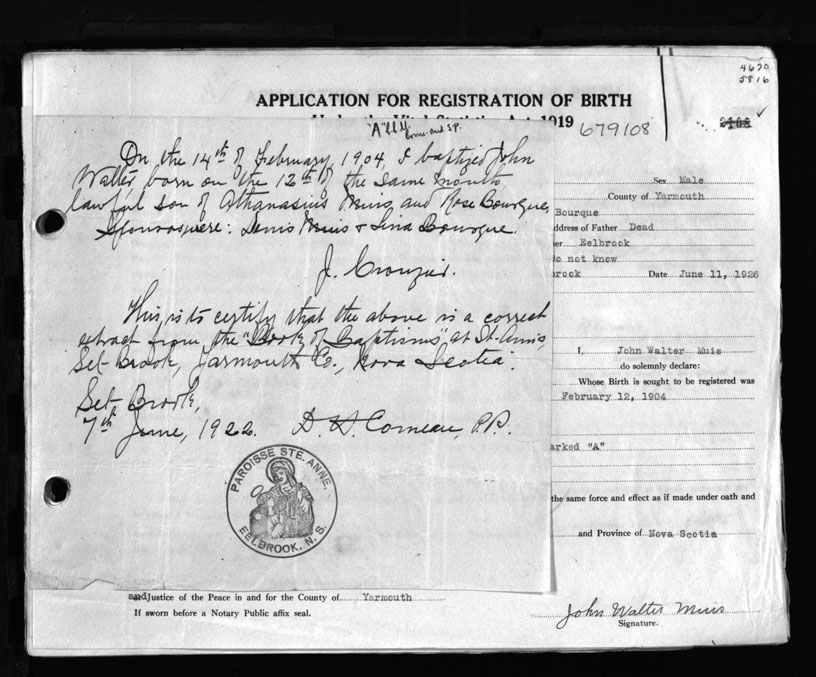 4670
5816
APPLICATION FOR REGISTRATION OF BIRTH
1919
679108
"A"
On the 14th of February, 1904, I baptized John
Walter born on the 12th of the same month
lawful son of Athanasius Muis, and Rose Bourque,
Sponsors were: Denis Muis & Lina Bourque.
J. Crouzier.
This is to certify that the above is a correct
extract from the "Book of Baptisms" at St. Ann's,
Eel-Brook, Yarmouth Co., Nova Scotia.
Eel-Brook,
7th June, 1922. D. H. Comeau, P.P.
PAROISSE STE. ANNE.
EELBROOK, N. S.
Sex Male
County of Yarmouth
Bourque
ddress of Father Dead
er Eelbrook
o not know
rook Date June 11, 1926
I, John Walter Muis
do solemnly declare:
Whose Birth is sought to be registered was
February 12, 1904
arked "A"
the same force and effect as if made under oath and
and Province of Nova Scotia
and Justice of the Peace in and for the County of Yarmouth
If sworn before a Notary Public affix seal.
John Walter Muis
Signature.